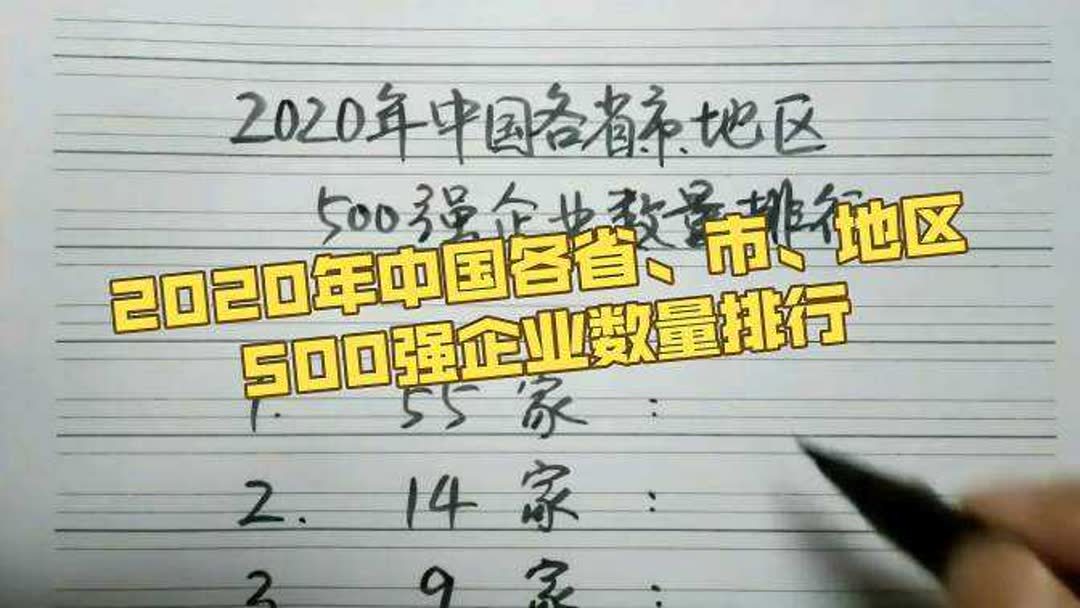 2020年中国各省市地区
500强企业数量排行
2020年中国各省、市、地区
500强企业数量排行
1. 55家：
2. 14家：
3. 9家：